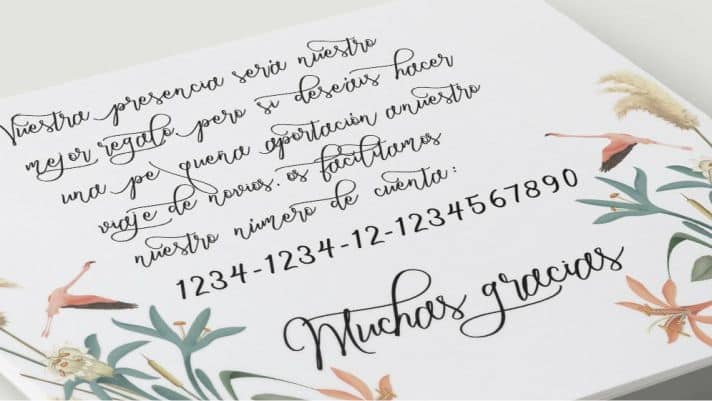 Vuestra presencia será nuestro
mejor regalo, pero si deseáis hacer
una pe queña aportación anuestro
viaje de novios, os facilitamos
nuestro número de cuenta:
1234-1234-12-1234567890
Muchas gracias